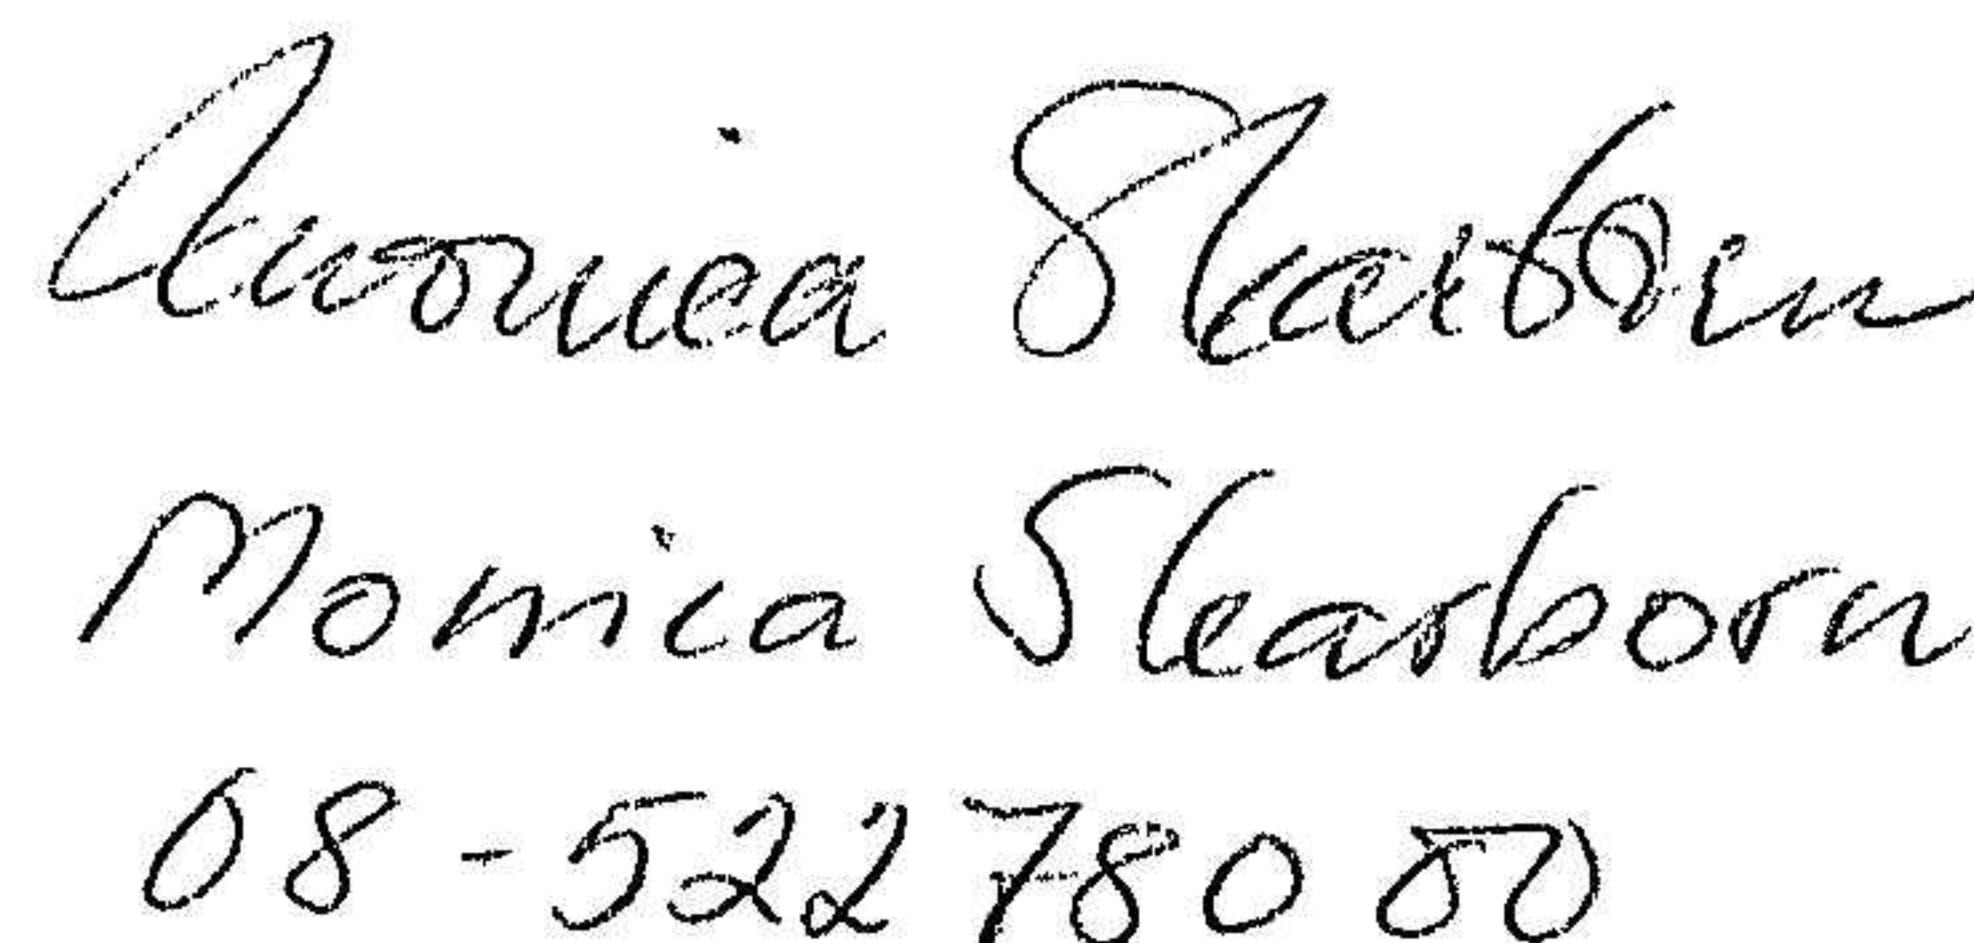 Veronica Skarborn
Monica Skarborn
08-522 780 00